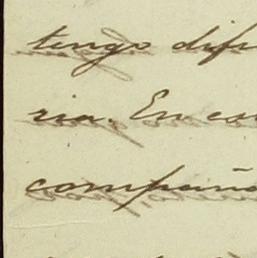 tengo dif
ria. En es
compaña